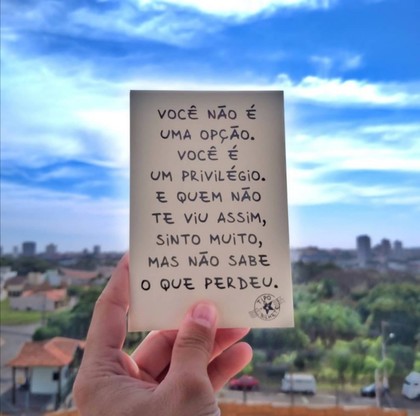 VOCÊ NÃO É
UMA OPÇÃO.
VOCÊ É
UM PRIVILÉGIO.
E QUEM NÃO
TE VIU ASSIM,
SINTO MUITO,
MAS NÃO SABE
O QUE PERDEU.